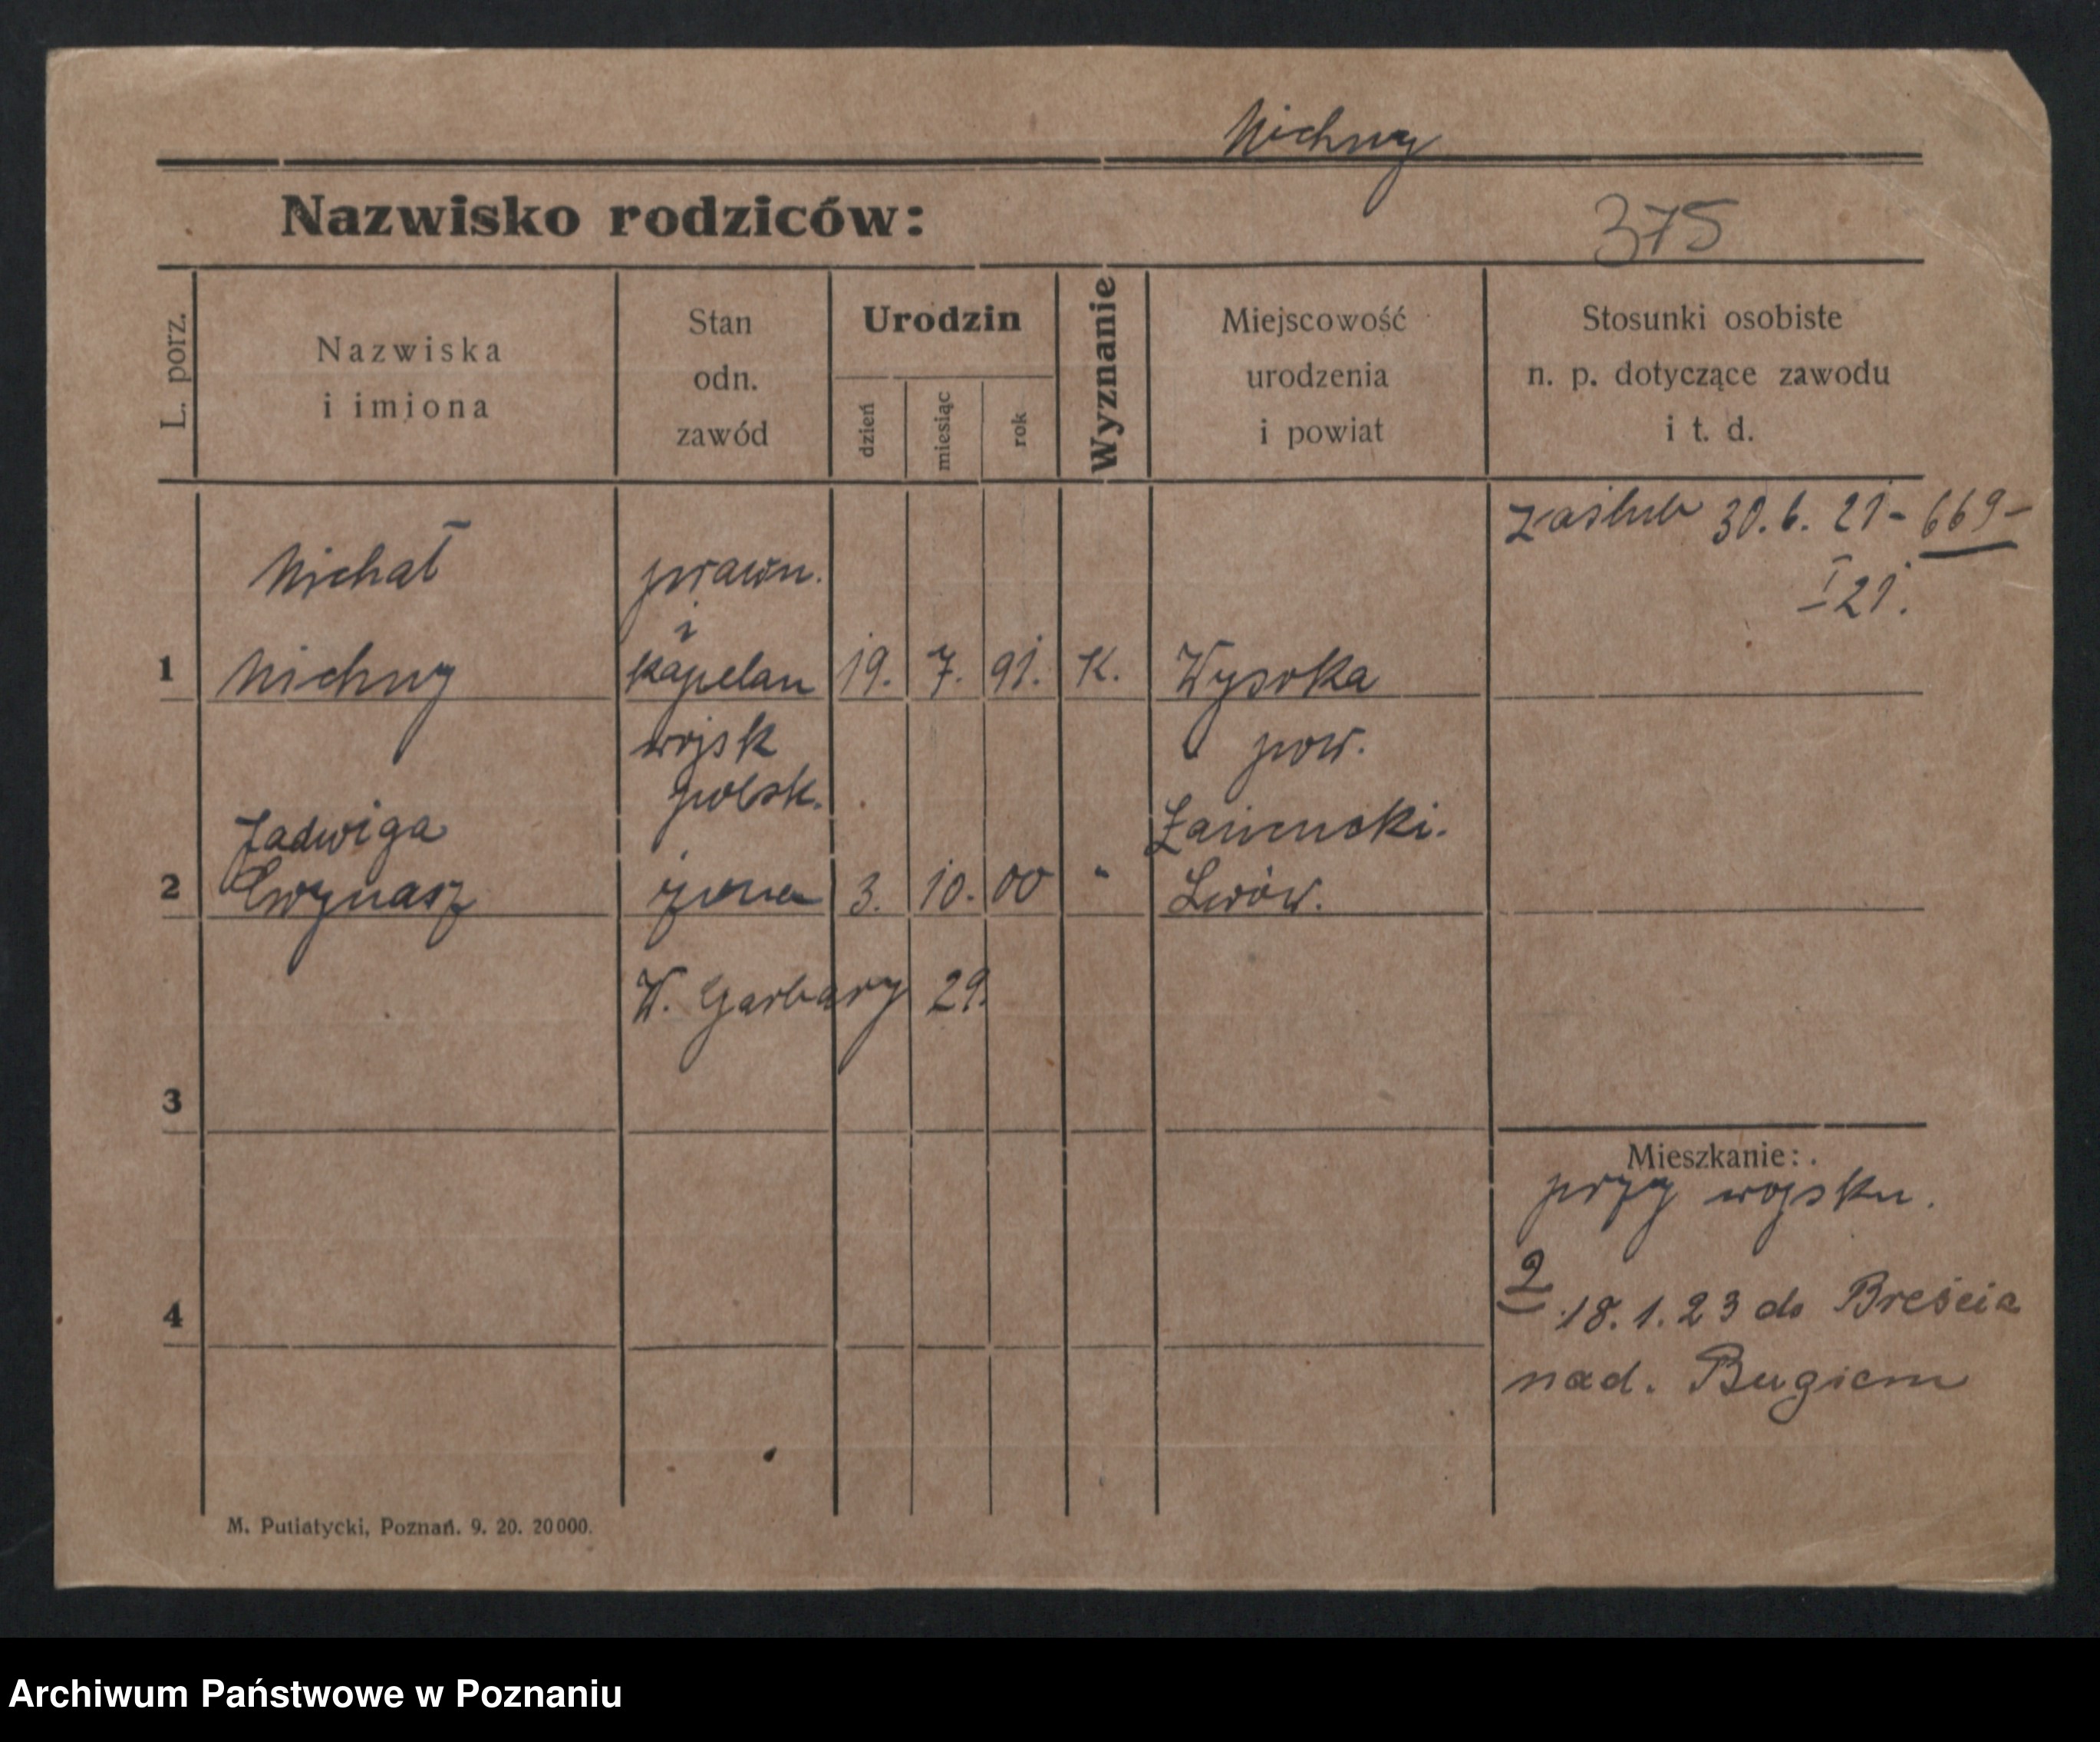 Michny
Nazwisko rodziców:
375
L. porz.
Nazwiska
i imiona
Stan
odn.
zawód
Urodzin
dzień
miesiąc
rok
Wyznanie
Miejscowość
urodzenia
i powiat
Stosunki osobiste
n. p. dotyczące zawodu
i t. d.
zaślub 30. 6. 21 - 669 -
I 21.
Michał
prawn.
i
1 Michny kapelan 19. 7. 91. K. Wysoka
wojsk pow.
polsk.
Jadwiga Łańcucki.
2 żona 3. 10. 00 " Lwów.
W. Garbary 29.
3
Mieszkanie:
przy wojsku.
2
18. 1. 23 do Breścia
4
nad. Bugiem
M. Putiatycki, Poznań. 9. 20. 20000.
Archiwum Państwowe w Poznaniu